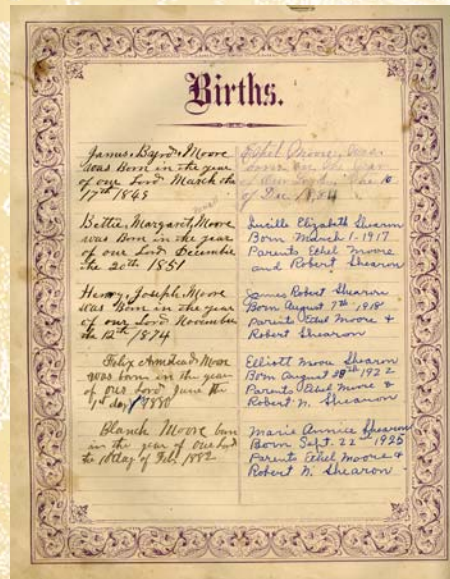 Births.
James. Byrd. Moore
was Born in the year
of our Lord March the
17th 1849
Bettie, Margaret, Moore
was Born in the year
of our Lord December
the 20th 1851
Henry, Joseph, Moore
was Born in the year
of our Lord November
the 12th 1874
Felix Moore
was born in the year
of our Lord June the
1st day 1880
Blanch Moore born
in the year of our Lord
the day of Feb. 1882
Ethel Moore, was
born in the year
of our Lord, the 10
of Dec 1884
Lucille Elizabeth Shearon
Born March 1-1917
Parents Ethel Moore
and Robert Shearon
James Robert Shearon
Born August 7th 1918
Parents Ethel Moore +
Robert Shearon
Elliott Moore Shearon
Born August 28th 1922
Parents Ethel Moore &
Robert N. Shearon
Marie Annice Shearon
Born Sept. 22nd 1925
Parents Ethel Moore &
Robert N. Shearon